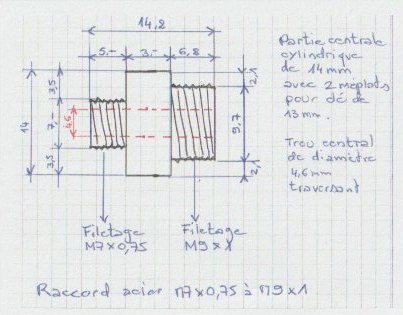 14,2
5,- 3,- 6,2
Partie centrale
cylindrique
de 14mm
avec 2 méplats
pour clé de
13mm.
Trou central
de diamètre
4,6mm
traversant
14
3,5
7,-
3,5
4,6
2,1
9,7
2,1
Filetage
M7x0,75
Filetage
M9x1
Raccord acier M7x0,75 à M9x1